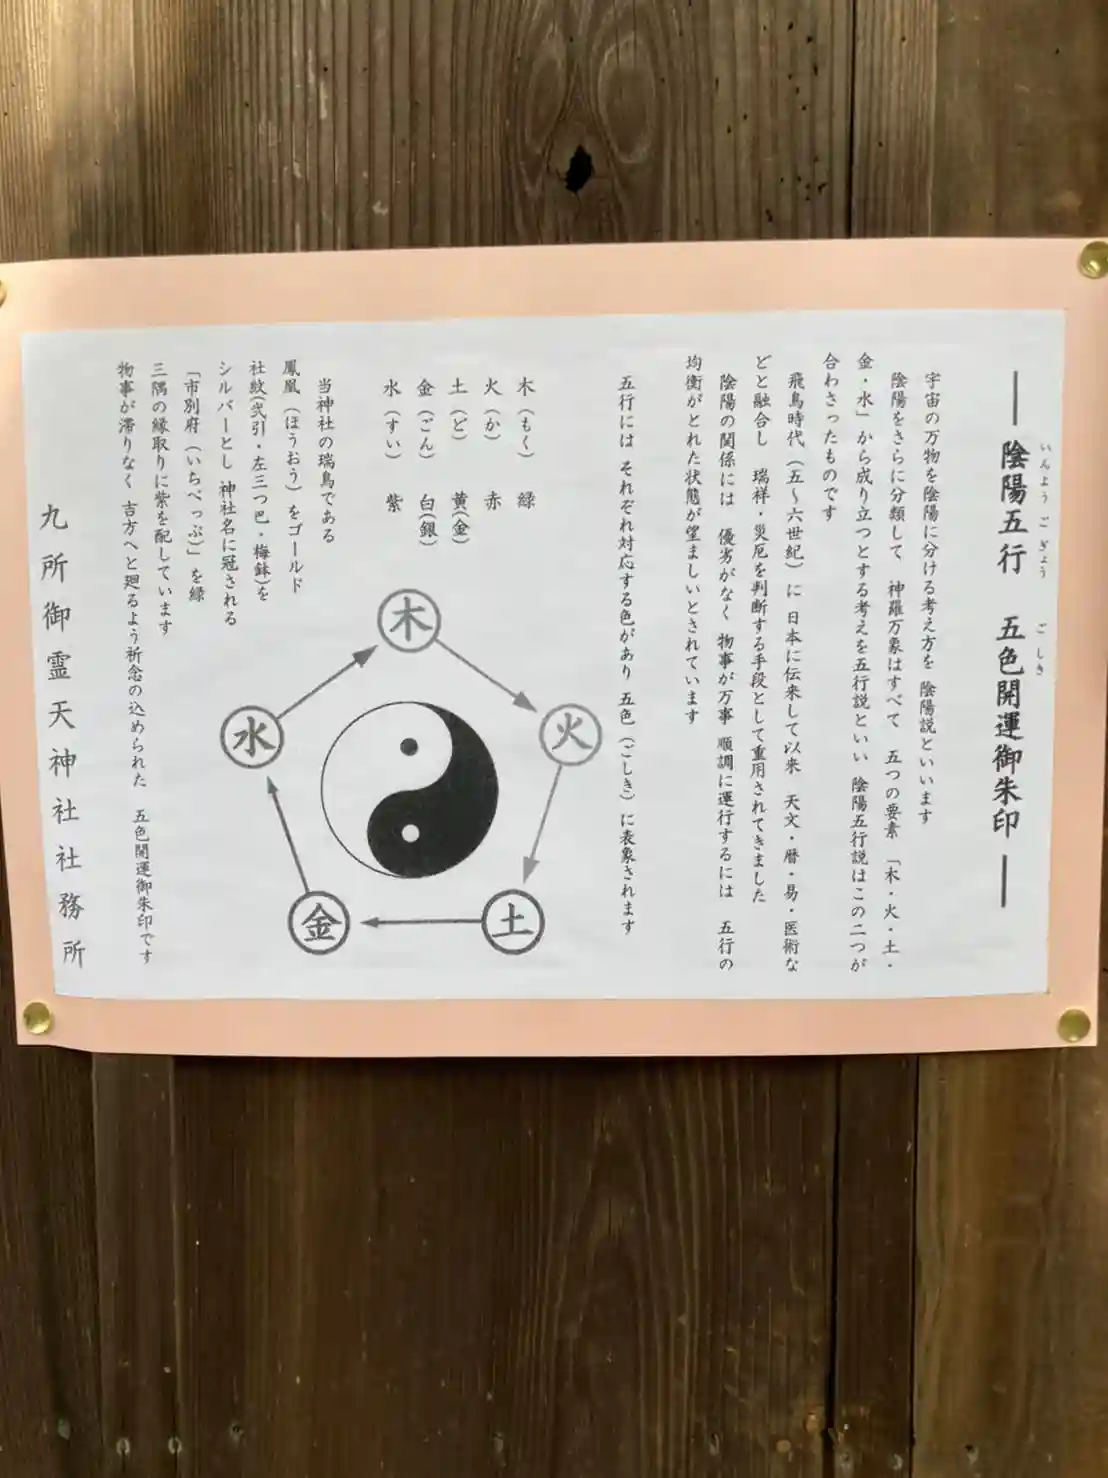 ― 陰陽五行 五色開運御朱印 ―
いんようごぎょう ごしき
宇宙の万物を陰陽に分ける考え方を 陰陽説といいます
陰陽をさらに分類して 神羅万象はすべて 五つの要素 「木・火・土・
金・水」から成り立つとする考えを五行説といい 陰陽五行説はこの二つが
合わさったものです
飛鳥時代（五～六世紀）に 日本に伝来して以来 天文・暦・易・医術な
どと融合し 瑞祥・災厄を判断する手段として重用されてきました
陰陽の関係には 優劣がなく 物事が万事 順調に運行するには 五行の
均衡がとれた状態が望ましいとされています
五行には それぞれ対応する色があり 五色（ごしき）に表象されます
木（もく） 緑
火（か） 赤
土（ど） 黄(金)
金（ごん） 白(銀)
水（すい） 紫
当神社の瑞鳥である
鳳凰（ほうおう）をゴールド
社紋(弐引・左三つ巴・梅鉢)を
シルバーとし 神社名に冠される
「市別府（いちべっぷ）」を緑
三隅の縁取りに紫を配しています
物事が滞りなく 吉方へと廻るよう祈念の込められた 五色開運御朱印です
九所御霊天神社社務所
木
火
土
金
水